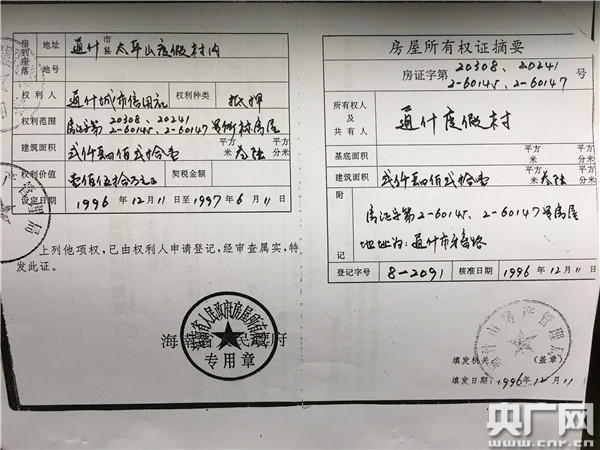 房屋坐落
地址
通什市县太平山度假村内
地号
权利人
通什城市信用社
权利种类
抵押
权利范围
房证字第20308、20241
2-60145、2-60147号所栋房屋
建筑面积
贰仟肆佰贰拾壹
平方米
叁陆
平方分米
权利价值
壹佰伍拾万元正
契税金额
设定日期
1996年12月11日至1997年6月11日
上列他项权,已由权利人申请登记,经审查属实,特
发此证。
海南省人民政府
海南省人民政府房屋所有权证
专用章
房屋所有权证摘要
房证字第
20308、20241
2-60145、2-60147
号
所有权人
及
共有人
通什度假村
基底面积
平方米
平方分米
建筑面积
贰仟肆佰贰拾壹
平方米
叁陆
平方分米
附记
房证字第2-60145、2-60147号房屋
地址为:通什市
路
登记字号
8-2091
核准日期
1996年12月11日
通什市房产管理局
填发机关
(盖章)
填发日期:1996年12月11
央广网
www.cnr.cn